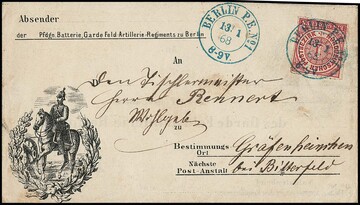 Absender
der Pfdgn. Batterie, Garde Feld Artillerie-Regiments zu Berlin
BERLIN P.E. No 1
13/1
68
6-9V.
An
den Tischlermeister
Herrn Rennert
Wohlgeb.
zu
Bestimmungs Ort Gräfenhainchen
Nächste Post-Anstalt bei Bitterfeld